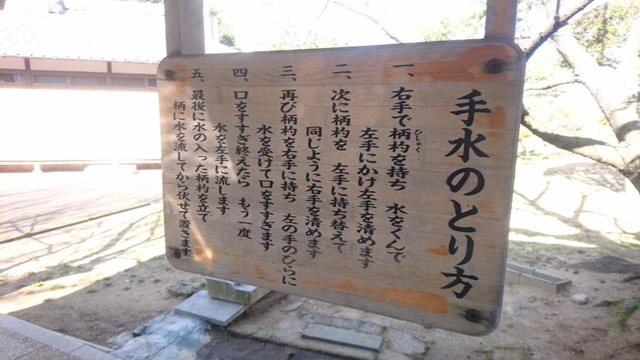 手水のとり方
一、右手で柄杓を持ち 水をくんで
ひしゃく
左手にかけ左手を清めます
二、次に柄杓を 左手に持ち替えて
同じように右手を清めます
三、再び柄杓を右手に持ち 左の手のひらに
水を受けて口をすすぎます
四、口をすすぎ終えたら もう一度
水を左手に流します
五、最後に水の入った柄杓を立て
柄に水を流してから伏せて置きます